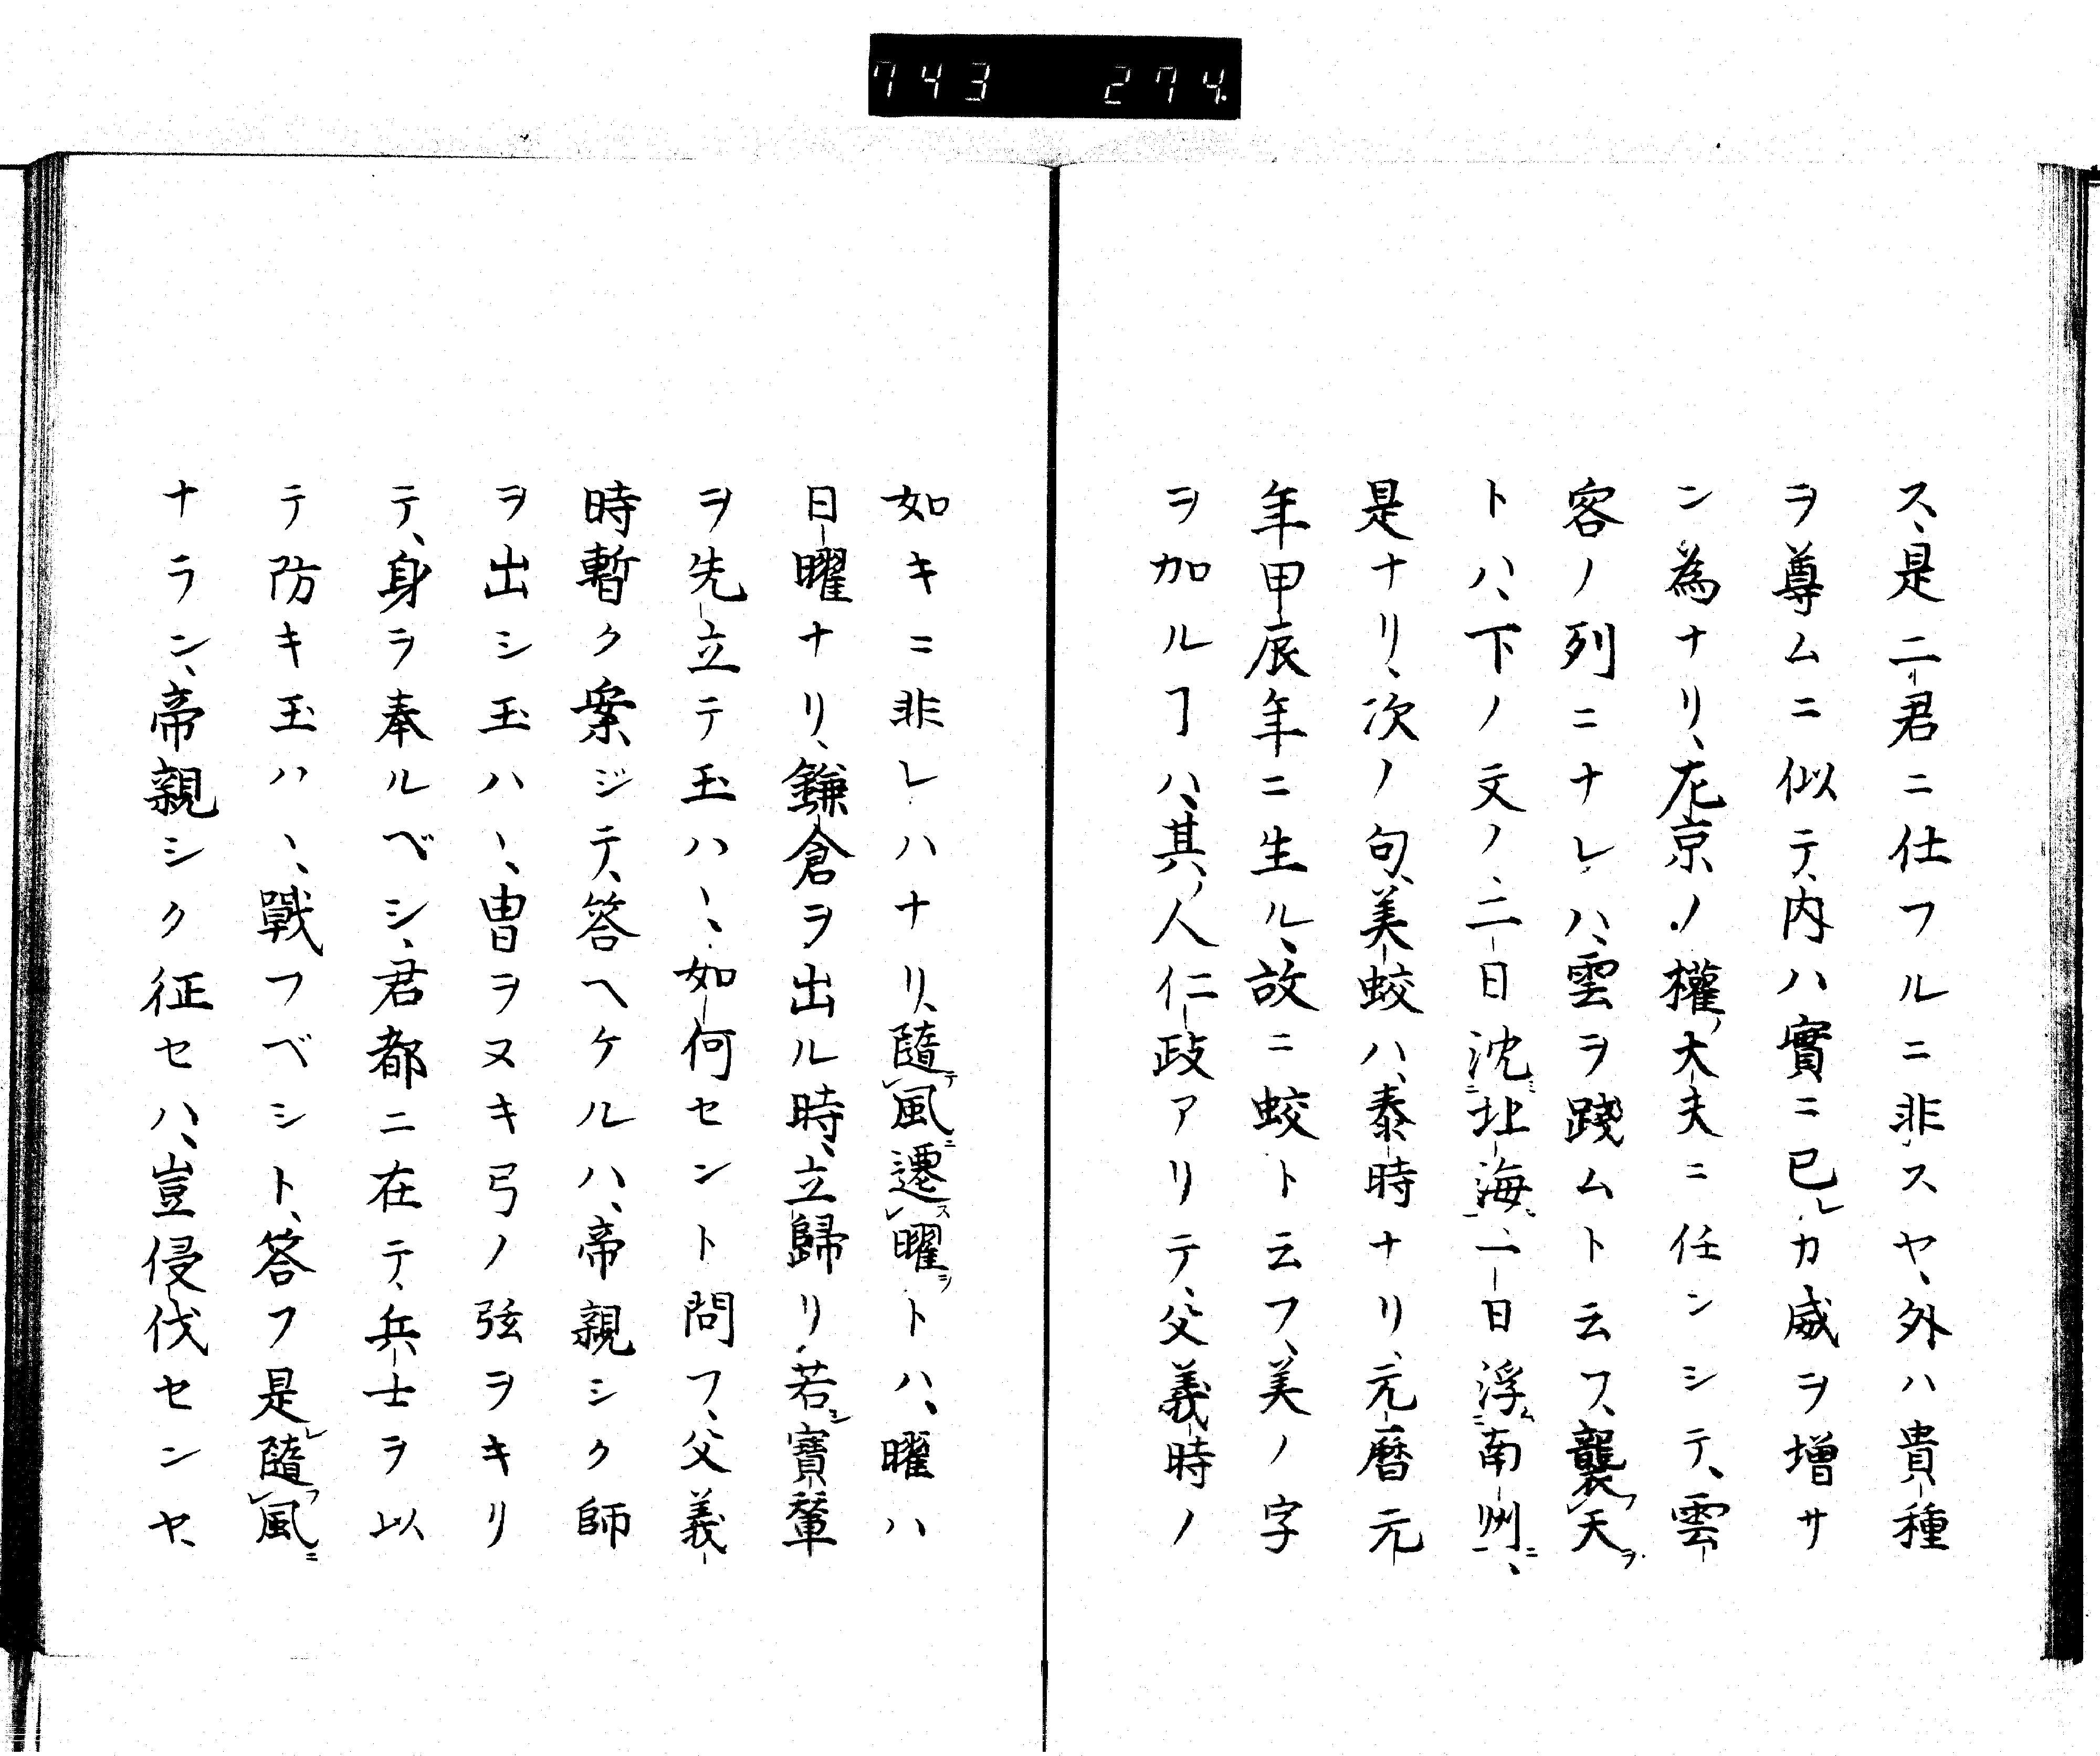 743 274
ス、是二君ニ仕フルニ非スヤ、外ハ貴種
ヲ尊ムニ似テ、内ハ實ニ已レカ威ヲ増サ
ン為ナリ、左京ノ權ノ大夫ニ任ンシテ、雲
客ノ列ニナレハ、雲ヲ踐ムト云フ、襲フレ天ヲ
トハ、下ノ文ノ、二日沈ニミ北海ニ一、一日浮ニム南州ニ一、
是ナリ、次ノ句、美蛟ハ、泰時ナリ、元暦元
年甲辰年ニ生ル、故ニ蛟ト云フ、美ノ字
ヲ加ルヿハ、其ノ人仁政アリテ、父義時ノ
如キニ非レハナリ、隨テレ風ニ遷スレ曜ヲトハ、曜ハ
日曜ナリ、鎌倉ヲ出ル時、立歸リ、若シ寶輦
ヲ先立テ玉ハヽ、如何セント問フ、父義
時暫ク案ジテ、答ヘケルハ、帝親シク師
ヲ出シ玉ハヽ、曹ヲヌキ弓ノ弦ヲキリ
テ、身ラ奉ルベシ、君都ニ在テ、兵士ヲ以
テ防キ玉ハヽ、戰フベシト、答フ是レ隨フレ風ニ
ナラン、帝親シク征セハ、豈侵伐センヤ、